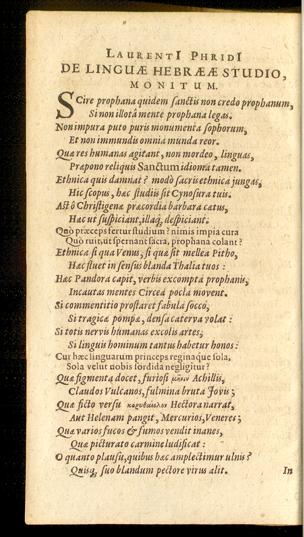 LAURENTI PHRIDI
DE LINGUÆ HEBRÆÆ STUDIO,
MONITUM.
SCire prophana quidem sanctis non credo prophanum,
Si non illotâ mente prophana legas.
Non impura puto puris monumenta sophorum,
Et non immundis omnia munda reor.
Quæ res humanas agitant, non mordeo, linguas,
Præpono reliquis Sanctum idioma tamen.
Ethnica quis damnat? modò sacris ethnica jungas,
Hic scopus, hæc studiis sit Cynosura tuis.
Ast ô Christigenæ præcordia barbara cætus,
Hæc ut suspiciant, illaq; despiciant.
Quò præceps fertur studium? nimis impia cura
Quò ruit, ut spernant sacra, prophana colant?
Ethnica si qua Venus, si qua sit mellea Pitho,
Hæc fluet in sensus blanda Thalia tuos:
Hæc Pandora capit, verbis excompta prophanis,
Incautas mentes Circea pocla movent.
Si commentitio prostaret fabula socco,
Si tragicæ pompæ, densa caterva volat:
Si totis nervis humanas excolis artes,
Si linguis hominum tantus habetur honos:
Cur hæc linguarum princeps reginaque sola,
Sola velut vobis sordida negligitur?
Quæ figmenta docet, furiosi μῆνιν Achillis,
Claudos Vulcanos, fulmina bruta Jovis;
Quæ ficto versu Hectora narrat,
Aut Helenam pangit, Mercurios, Veneres;
Quæ varios fucos & fumos vendit inanes,
Quæ picturato carmine ludificat:
O quanto plausu, quibus hæc amplectimur ulnis?
Quisq, suo blandum pectore virus alit.
In